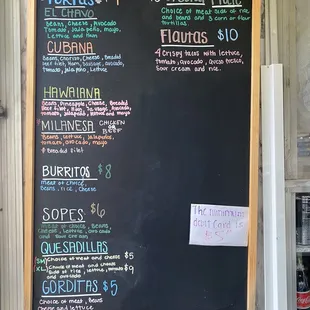 EL CHAVO
Beans, Cheese, Avocado
Tomato, Jalapeño, mayo,
Lettuce and Ham
CUBANA
Beans, Chorizo, Cheese, Breaded
Beef filet, Ham, Sausage, Avocado,
Tomato, Jalapeño, Lettuce
HAWAIANA
Beans, Pineapple, Cheese, Breaded
Tomato, Jalapeño, Lettuce and mayo
MILANESA CHICKEN
BEEF
Beans, Lettuce, Jalapeños,
Tomato, Avocado, mayo
Breaded filet
BURRITOS $8
meat of choice,
Beans, rice, Cheese
SOPES $6
meat of choice, Beans,
Cheese, Lettuce, Avocado
and sour cream
QUESADILLAS
SM Choice of meat and cheese $5
XL Choice of meat and cheese
Side of rice, lettuce, tomato $9
and avocado
GORDITAS $5
Choice of meat, Beans
Cheese and lettuce
Choice of meat side of rice
and beans and 3 corn or flour
tortillas
Flautas $10
4 Crispy tacos with lettuce,
tomato, avocado, queso fresco,
Sour cream and rice.
The minimum
debit card is